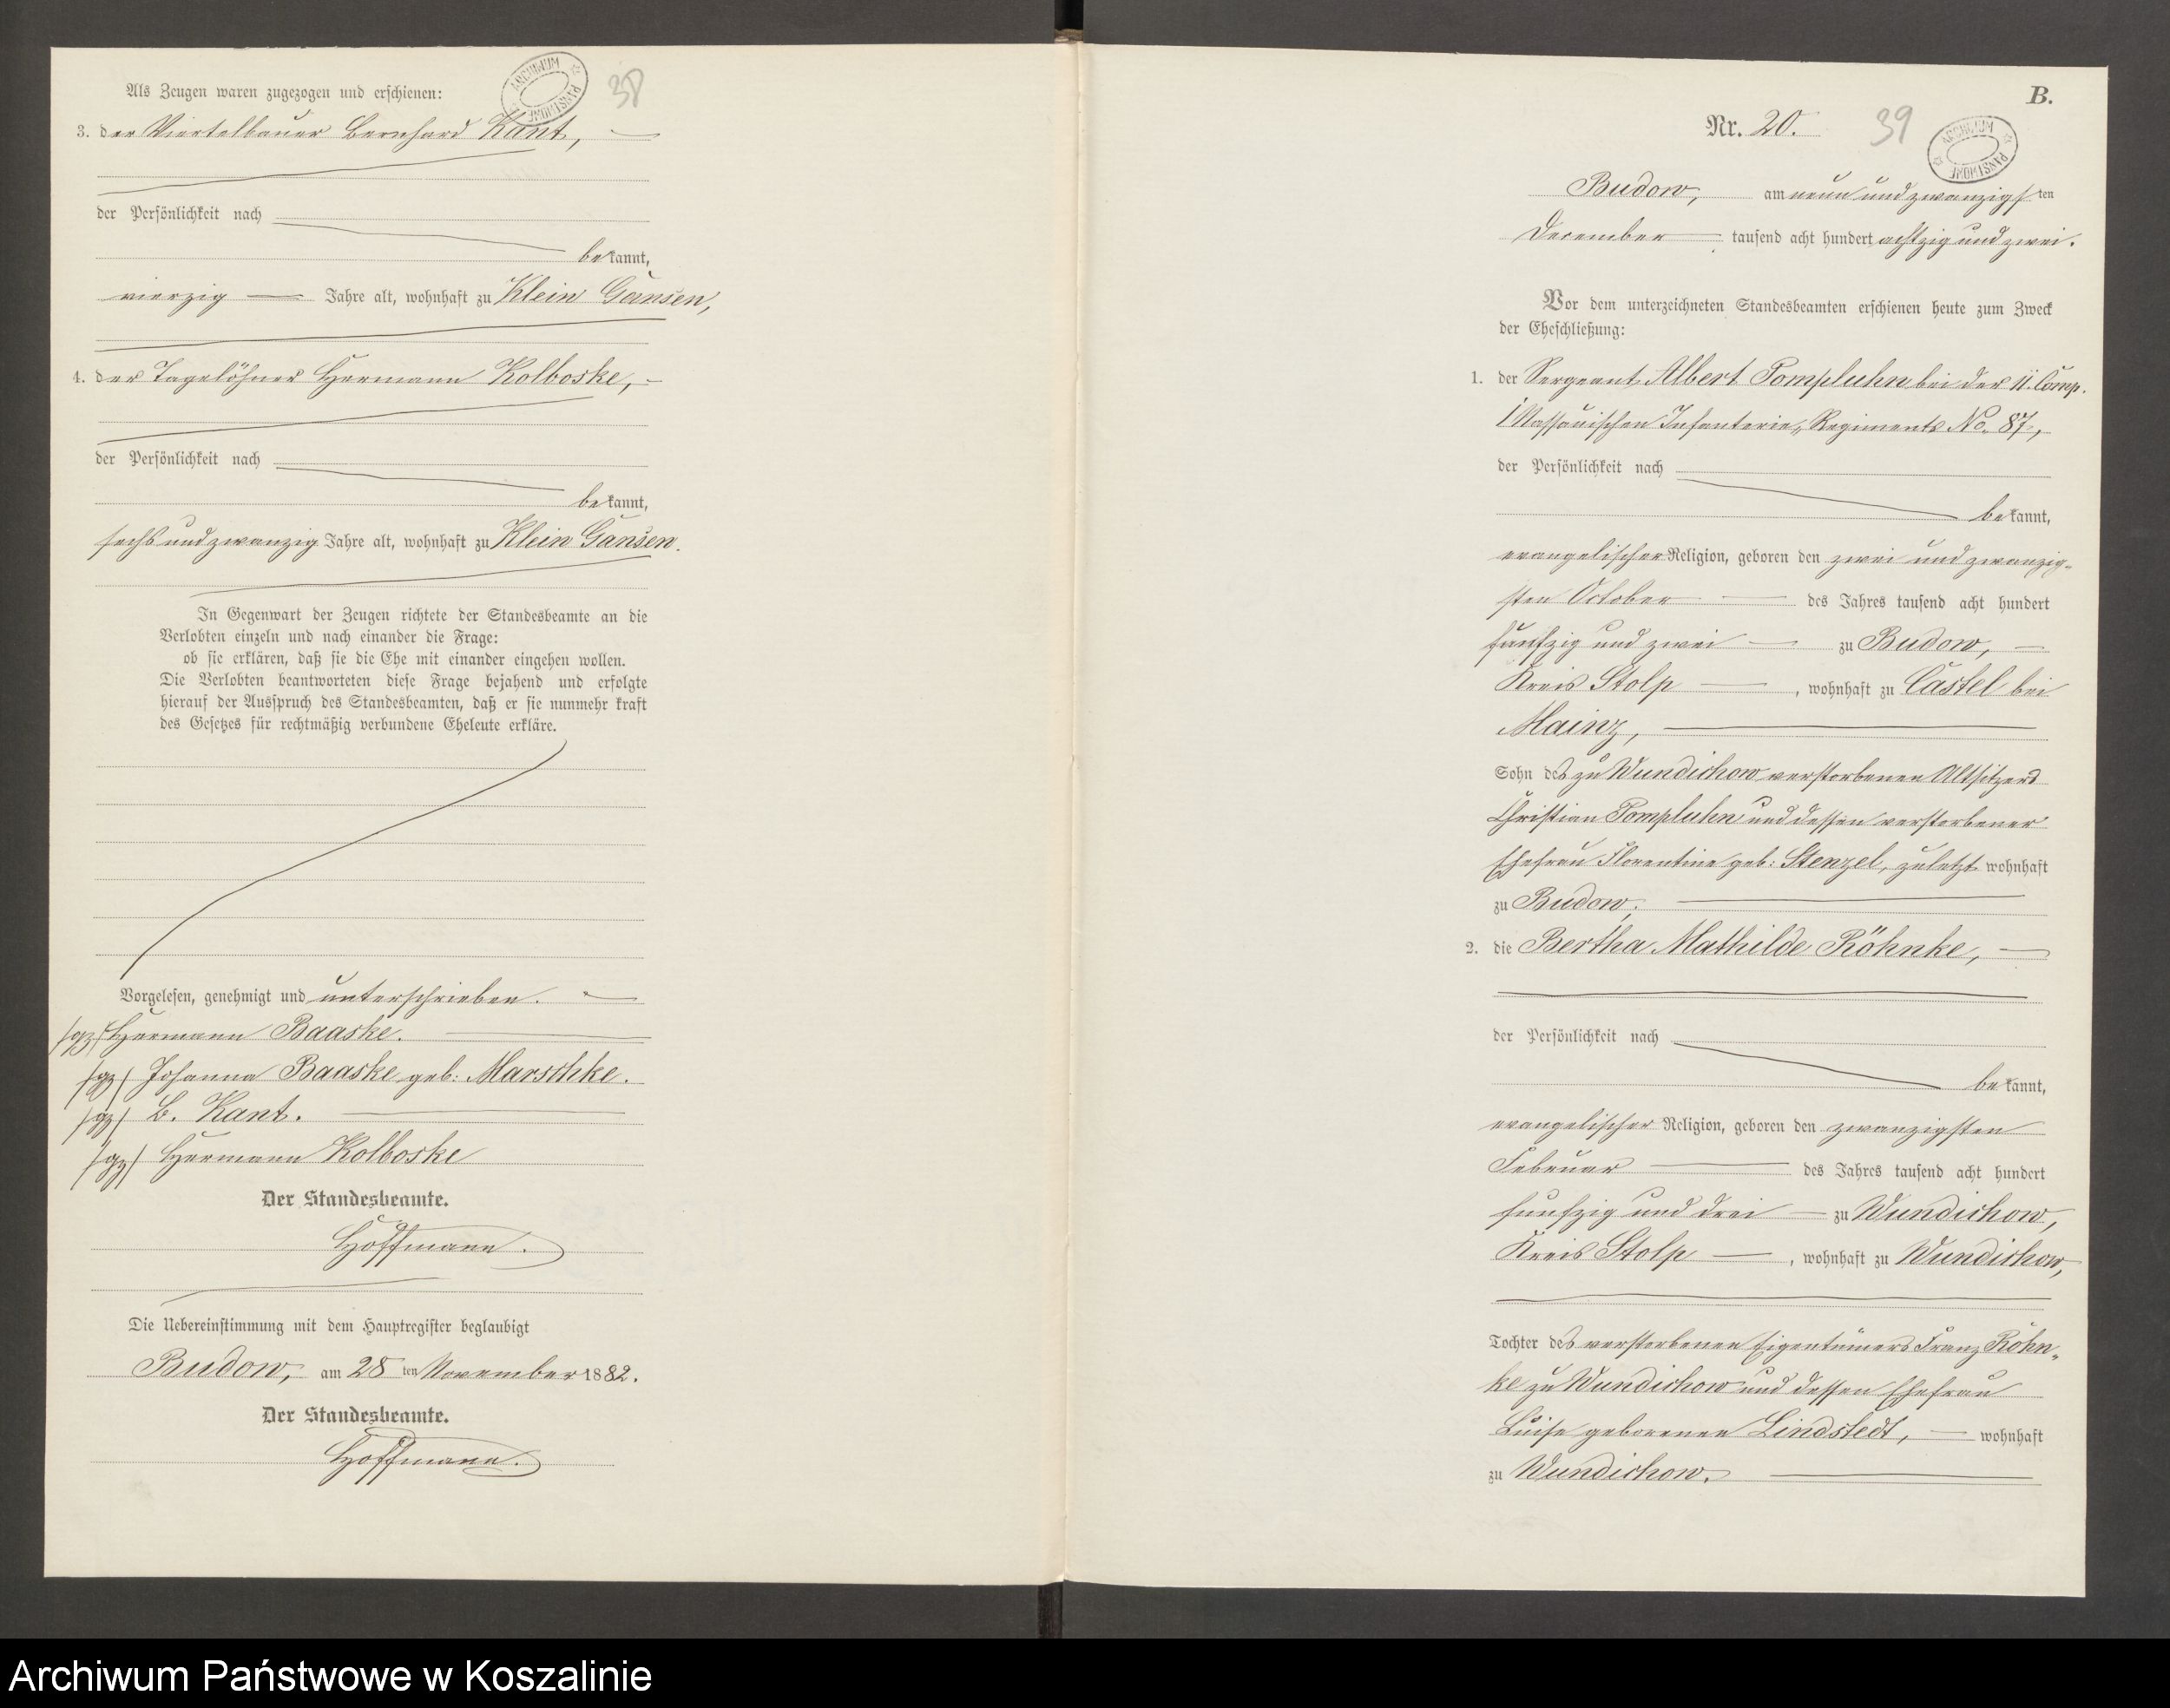 Als Zeugen waren zugezogen und erschienen:
38
ARCHIWUM PAŃSTWOWE
3. der Viertelbauer Bernhard Kant,
der Persönlichkeit nach
bekannt,
vierzig Jahre alt, wohnhaft zu Klein Gansen,
4. der Tagelöhner Hermann Kolboske,
der Persönlichkeit nach
bekannt,
sechs und zwanzig Jahre alt, wohnhaft zu Klein Gansen.
In Gegenwart der Zeugen richtete der Standesbeamte an die
Verlobten einzeln und nach einander die Frage:
ob sie erklären, daß sie die Ehe mit einander eingehen wollen.
Die Verlobten beantworteten diese Frage bejahend und erfolgte
hierauf der Ausspruch des Standesbeamten, daß er sie nunmehr kraft
des Gesetzes für rechtmäßig verbundene Eheleute erkläre.
Vorgelesen, genehmigt und unterschrieben.
/gz/ Hermann Baaske.
/gz/ Johanna Baaske geb: Marschke.
/gz/ B. Kant.
/gz/ Hermann Kolboske
Der Standesbeamte.
Hoffmann.
Die Uebereinstimmung mit dem Hauptregister beglaubigt
Budow, am 28 ten November 1882.
Der Standesbeamte.
Hoffmann.
B.
Nr. 20.
39
ARCHIWUM PAŃSTWOWE
Budow, am neun und zwanzigsten
December tausend acht hundert achtzig und zwei.
Vor dem unterzeichneten Standesbeamten erschienen heute zum Zweck
der Eheschließung:
1. der Sergeant Albert Pompluhn bei der 11. Comp.
1 Nassauischen Infanterie-Regiments No. 87,
der Persönlichkeit nach
bekannt,
evangelischer Religion, geboren den zwei und zwanzig-
sten October des Jahres tausend acht hundert
funfzig und zwei zu Budow,
Kreis Stolp, wohnhaft zu Castel bei
Mainz,
Sohn des zu Wundichow verstorbenen Altsitzers
Christian Pompluhn und dessen verstorbener
Ehefrau Florentine geb: Stenzel, zuletzt wohnhaft
zu Budow;
2. die Bertha Mathilde Röhnke,
der Persönlichkeit nach
bekannt,
evangelischer Religion, geboren den zwanzigsten
Februar des Jahres tausend acht hundert
funfzig und drei zu Wundichow,
Kreis Stolp, wohnhaft zu Wundichow,
Tochter des verstorbenen Eigentümers Franz Röhn-
ke zu Wundichow und dessen Ehefrau
Luise geborenen Lindstedt, wohnhaft
zu Wundichow.
Archiwum Państwowe w Koszalinie